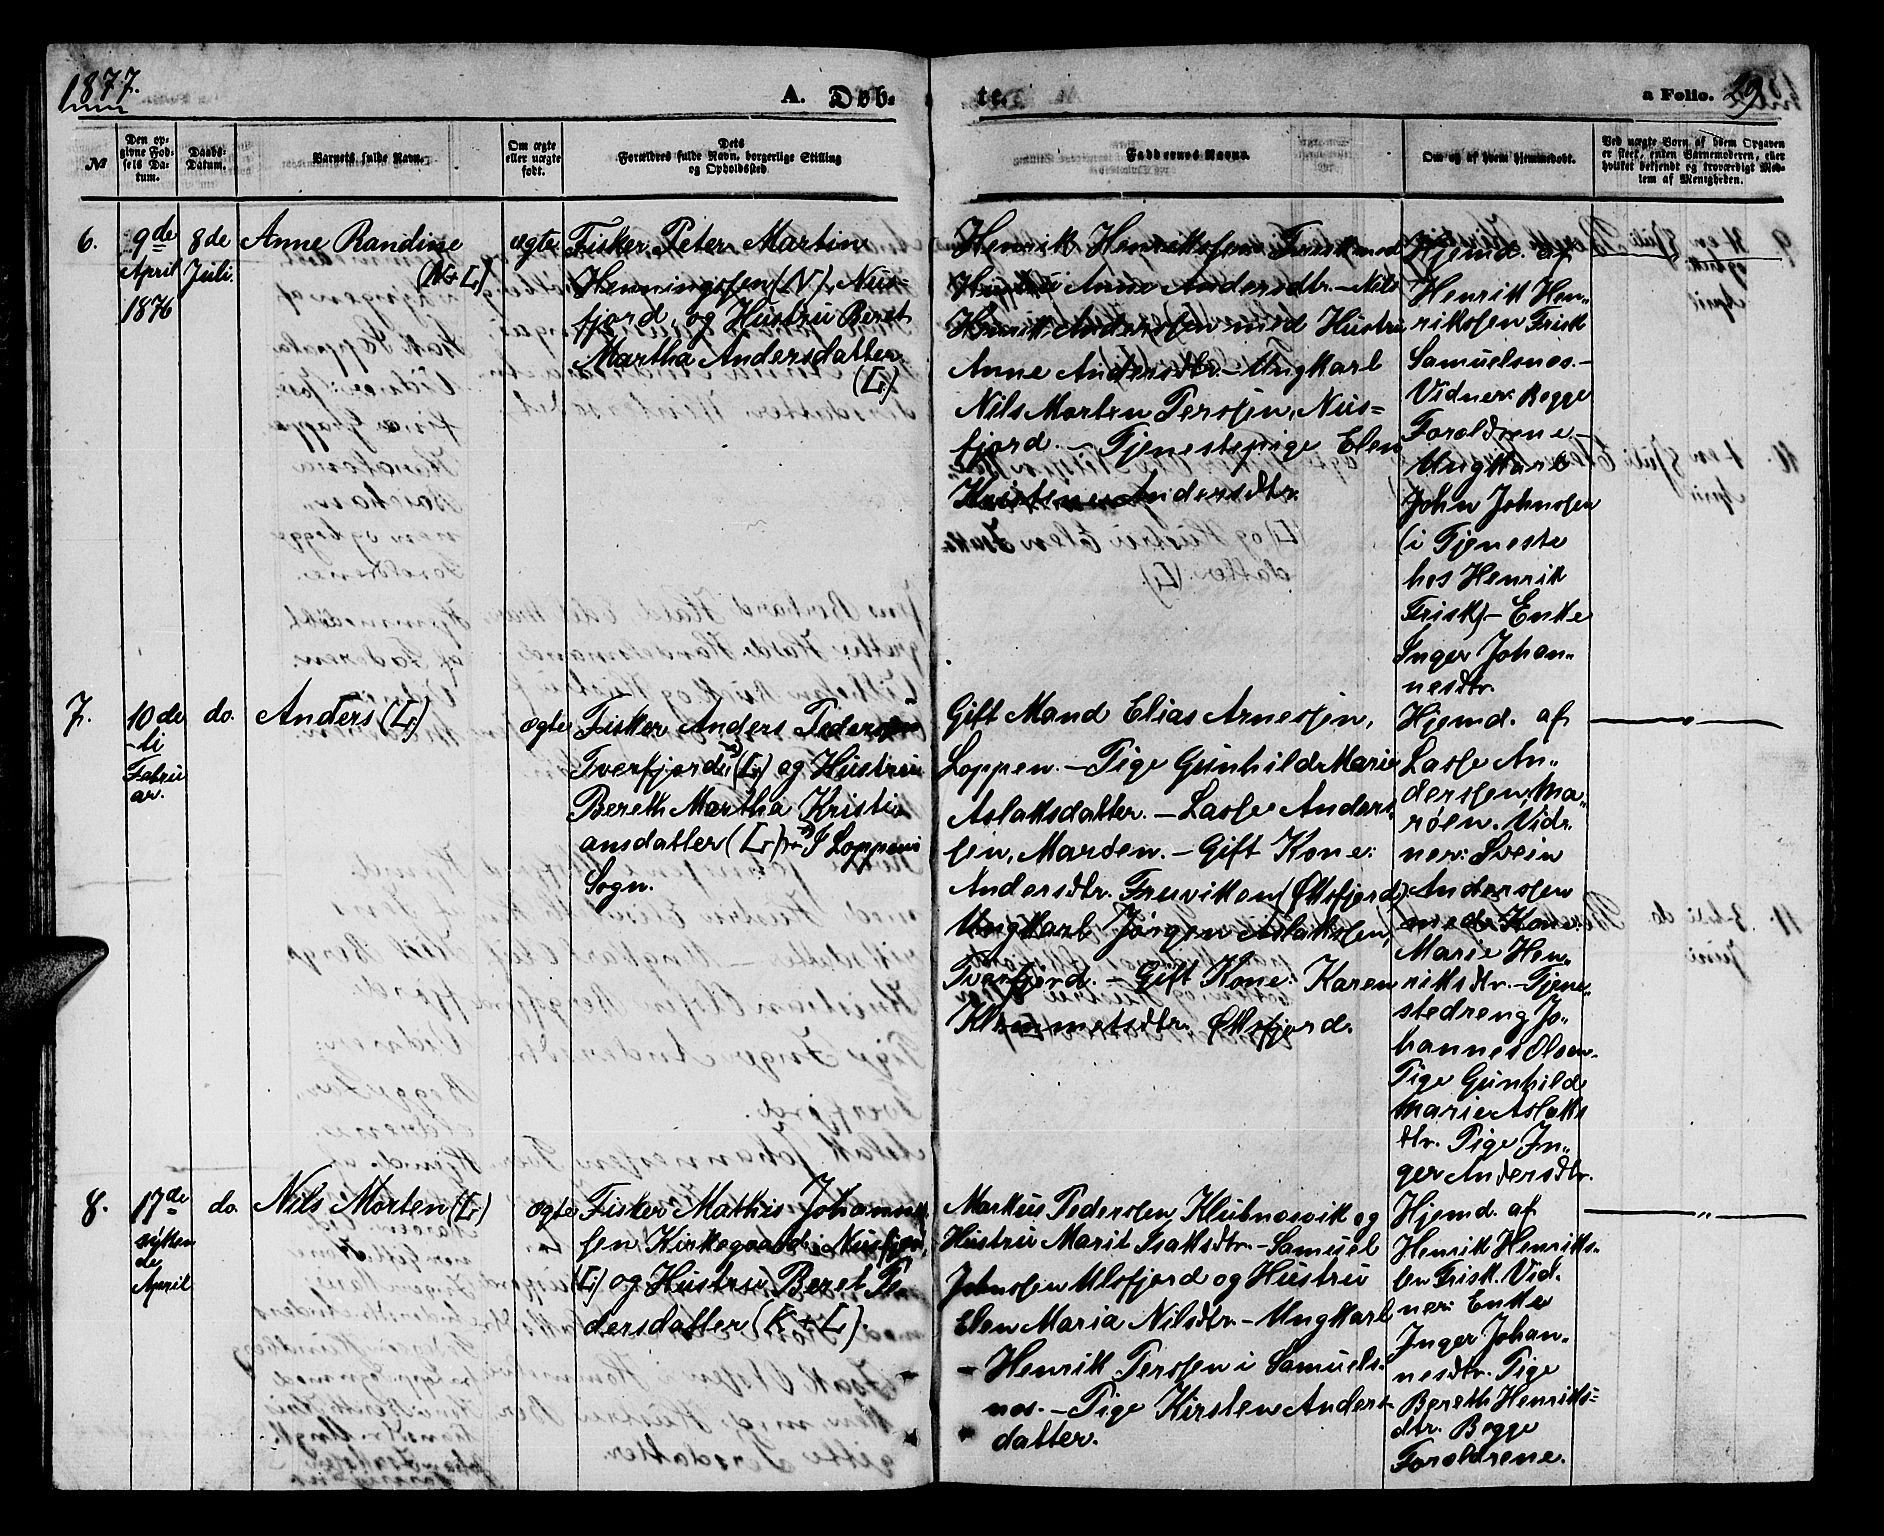 1877.
A. Døb-
te.
a Folio. 29
№
Den op-
givne Fød-
sels Da-
tum.
Daabs-
Datum.
Barnets fulde Navn.
Om ægte
eller uægte
født.
Dets
Forældres fulde Navn, borgerlige Stilling
og Opholdssted.
Faddernes Navne.
Om og af hvem hjemmedøbt.
Ved uægte Børn af hvem Opgaven
er skeet, enten Barnemoderen, eller
hvilket bekjendt og troværdigt Med-
lem af Menigheden.
6.
9de
April
1876
8de
Juli.
Anne Randine
(N+L)
ægte
Fisker Peter Martin
Henningssen (N), Nus-
fjord, og Hustru Beret
Martha Andersdatter.
(L)
Henrik Henrikssen Frisk med
Hustru Anne Andersdtr. - Nils
Henrik Anderssen med Hustru
Anne Andersdtr. - Ungkarl
Nils Morten Perssen, Nus-
fjord. - Tjenestepige Elen
Kristine Andersdtr.
Hjemd. af
Henrik Hen-
rikssen Frisk
Samuelsnes.-
Vidner: Begge
Forældrene -
Ungkarl
John Johnssen
(i Tjeneste
hos Henrik
Frisk) - Enke
Inger Johan-
nesdtr.
7.
10de
-ti
Febru
ar.
do.
Anders (L)
ægte
Fisker Anders Pederssen
Tverfjord (L) og Hustru
Bereth Martha Kristi-
ansdatter (L) - I Loppens
Sogn.
Gift Mand Elias Arnessen,
Loppen. - Pige Gunhild Marie
Aslaksdatter. - Lasse Anders-
sen, Marøen. - Gift Kone:
Andersdtr. Fruviken (Øksfjord)
Ungkarl Jørgen Aslakssen,
Tverfjord. - Gift Kone: Karen
Klemmetsdtr. Øksfjord.
Hjemd. af
Lasse An-
derssen, Ma-
røen. Vid-
ner: Svein
Anderssen
med Kone:
Marie Hen-
riksdtr. - Tjene-
stedreng Jo-
hannes Olsen.
Pige Gunhild
Marie Aslaks
dtr. Pige In-
ger Andersdtr.
8.
17de
sytten
de
April
do.
Nils Morten (L)
ægte
Fisker Mathis Johannes
sen Kirkegaard i Nusfjord,
(L) og Hustru Beret Pe-
dersdatter (K+L).
Markus Pederssen Klubnesvik og
Hustru Marit Isaksdtr. - Samuel
Johnssen Ulsfjord og Hustru
Elen Maria Nilsdtr. - Ungkarl
- Henrik Perssen i Samuels-
nes. - Pige Kirsten Anders-
datter.
Hjemd. af
Henrik Henriks-
sen Frisk. Vid-
ner: Enke
Inger Johan-
nesdtr. Pige
Bereth Henriks-
dtr. Begge
Forældrene.